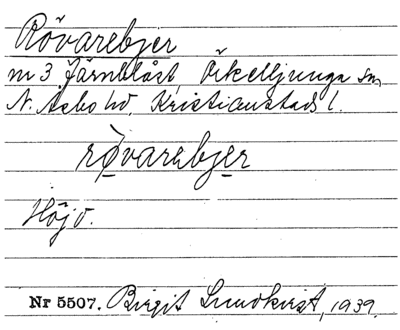 Rövarebjer
nr 3 Järnblåst, Örkelljunga sn,
N. Åsbo hd, Kristianstads l.
rövarebjer
Höjd.
Nr 5507. Birgit Lundkvist, 1939.